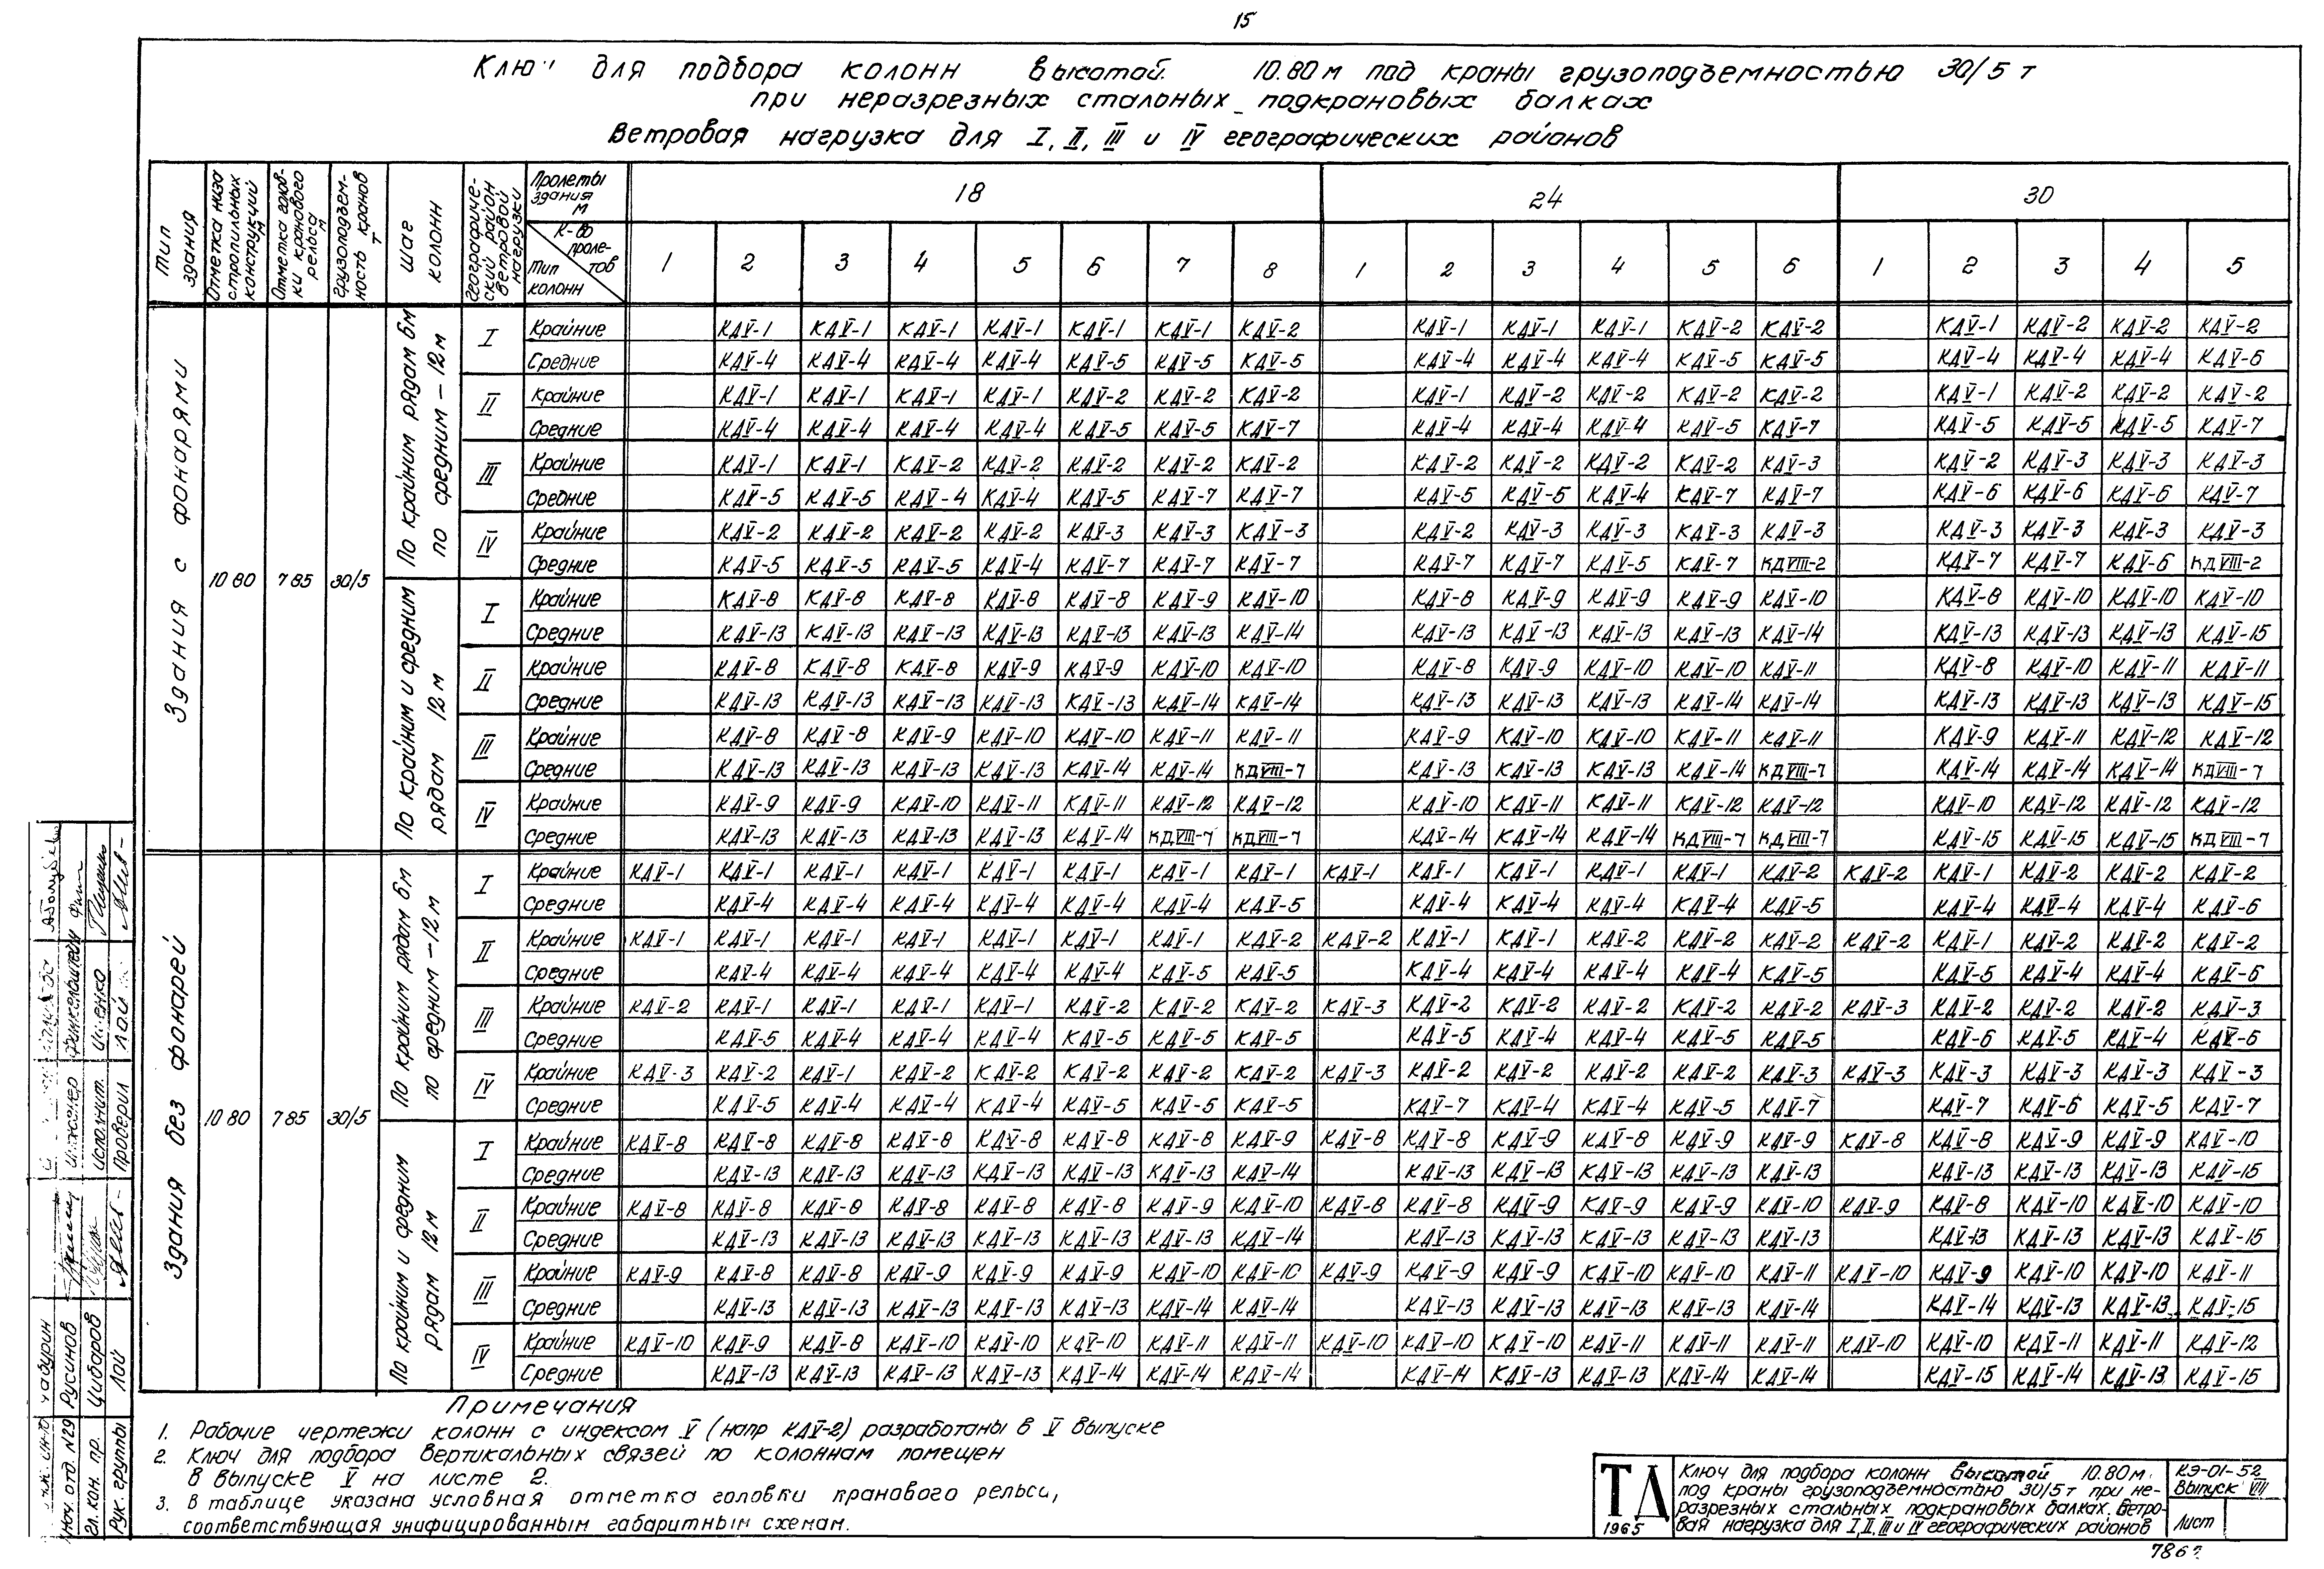 15
Ключ для подбора колонн высотой 10.80 м под краны грузоподъемностью 30/5 т
при неразрезных стальных подкрановых балках
Ветровая нагрузка для I, II, III и IV географических районов
Тип здания | Отметка низа стропильных конструкций м | Отметка голов-ки кранового рельса м | Грузоподъем-ность кранов т | Шаг колонн | Географиче-ский район ветровой нагрузки | Пролеты здания м | 18 | 24 | 30
К-во проле-тов | Тип колонн | 1 | 2 | 3 | 4 | 5 | 6 | 7 | 8 | 1 | 2 | 3 | 4 | 5 | 6 | 1 | 2 | 3 | 4 | 5
Здания с фонарями | 10 80 | 7 85 | 30/5
По крайним рядам 6м по средним – 12 м
I | Крайние | КДV-1 | КДV-1 | КДV-1 | КДV-1 | КДV-1 | КДV-1 | КДV-2 | КДV-1 | КДV-1 | КДV-1 | КДV-2 | КДV-2 | КДV-1 | КДV-2 | КДV-2 | КДV-2
Средние | КДV-4 | КДV-4 | КДV-4 | КДV-4 | КДV-5 | КДV-5 | КДV-5 | КДV-4 | КДV-4 | КДV-4 | КДV-5 | КДV-5 | КДV-4 | КДV-4 | КДV-4 | КДV-6
II | Крайние | КДV-1 | КДV-1 | КДV-1 | КДV-1 | КДV-2 | КДV-2 | КДV-2 | КДV-1 | КДV-2 | КДV-2 | КДV-2 | КДV-2 | КДV-1 | КДV-2 | КДV-2 | КДV-2
Средние | КДV-4 | КДV-4 | КДV-4 | КДV-4 | КДV-5 | КДV-5 | КДV-7 | КДV-4 | КДV-4 | КДV-4 | КДV-5 | КДV-7 | КДV-5 | КДV-5 | КДV-5 | КДV-7
III | Крайние | КДV-1 | КДV-1 | КДV-2 | КДV-2 | КДV-2 | КДV-2 | КДV-2 | КДV-2 | КДV-2 | КДV-2 | КДV-2 | КДV-3 | КДV-2 | КДV-3 | КДV-3 | КДV-3
Средние | КДV-5 | КДV-5 | КДV-4 | КДV-4 | КДV-5 | КДV-7 | КДV-7 | КДV-5 | КДV-5 | КДV-4 | КДV-7 | КДV-7 | КДV-6 | КДV-6 | КДV-6 | КДV-7
IV | Крайние | КДV-2 | КДV-2 | КДV-2 | КДV-2 | КДV-3 | КДV-3 | КДV-3 | КДV-2 | КДV-3 | КДV-3 | КДV-3 | КДV-3 | КДV-3 | КДV-3 | КДV-3 | КДV-3
Средние | КДV-5 | КДV-5 | КДV-5 | КДV-4 | КДV-7 | КДV-7 | КДV-7 | КДV-7 | КДV-7 | КДV-5 | КДV-7 | КДVIII-2 | КДV-7 | КДV-7 | КДV-6 | КДVIII-2
По крайним и средним рядам 12 м
I | Крайние | КДV-8 | КДV-8 | КДV-8 | КДV-8 | КДV-8 | КДV-9 | КДV-10 | КДV-8 | КДV-9 | КДV-9 | КДV-9 | КДV-10 | КДV-8 | КДV-10 | КДV-10 | КДV-10
Средние | КДV-13 | КДV-13 | КДV-13 | КДV-13 | КДV-13 | КДV-13 | КДV-14 | КДV-13 | КДV-13 | КДV-13 | КДV-13 | КДV-14 | КДV-13 | КДV-13 | КДV-13 | КДV-15
II | Крайние | КДV-8 | КДV-8 | КДV-8 | КДV-9 | КДV-9 | КДV-10 | КДV-10 | КДV-8 | КДV-9 | КДV-10 | КДV-10 | КДV-11 | КДV-8 | КДV-10 | КДV-11 | КДV-11
Средние | КДV-13 | КДV-13 | КДV-13 | КДV-13 | КДV-13 | КДV-14 | КДV-14 | КДV-13 | КДV-13 | КДV-13 | КДV-14 | КДV-14 | КДV-13 | КДV-13 | КДV-13 | КДV-15
III | Крайние | КДV-8 | КДV-8 | КДV-9 | КДV-10 | КДV-10 | КДV-11 | КДV-11 | КДV-9 | КДV-10 | КДV-10 | КДV-11 | КДV-11 | КДV-9 | КДV-11 | КДV-12 | КДV-12
Средние | КДV-13 | КДV-13 | КДV-13 | КДV-13 | КДV-14 | КДV-14 | КДVIII-7 | КДV-13 | КДV-13 | КДV-13 | КДV-14 | КДVIII-7 | КДV-14 | КДV-14 | КДV-14 | КДVIII-7
IV | Крайние | КДV-9 | КДV-9 | КДV-10 | КДV-11 | КДV-11 | КДV-12 | КДV-12 | КДV-10 | КДV-11 | КДV-11 | КДV-12 | КДV-12 | КДV-10 | КДV-12 | КДV-12 | КДV-12
Средние | КДV-13 | КДV-13 | КДV-13 | КДV-13 | КДV-14 | КДVIII-7 | КДVIII-7 | КДV-14 | КДV-14 | КДV-14 | КДVIII-7 | КДVIII-7 | КДV-15 | КДV-15 | КДV-15 | КДVIII-7
Здания без фонарей | 10 80 | 7 85 | 30/5
По крайним рядам 6м по средним – 12 м
I | Крайние | КДV-1 | КДV-1 | КДV-1 | КДV-1 | КДV-1 | КДV-1 | КДV-1 | КДV-1 | КДV-1 | КДV-1 | КДV-1 | КДV-1 | КДV-1 | КДV-2 | КДV-2 | КДV-1 | КДV-2 | КДV-2 | КДV-2
Средние | КДV-4 | КДV-4 | КДV-4 | КДV-4 | КДV-4 | КДV-4 | КДV-5 | КДV-4 | КДV-4 | КДV-4 | КДV-4 | КДV-5 | КДV-4 | КДV-4 | КДV-4 | КДV-6
II | Крайние | КДV-1 | КДV-1 | КДV-1 | КДV-1 | КДV-1 | КДV-1 | КДV-1 | КДV-2 | КДV-2 | КДV-1 | КДV-1 | КДV-2 | КДV-2 | КДV-2 | КДV-2 | КДV-1 | КДV-2 | КДV-2 | КДV-2
Средние | КДV-4 | КДV-4 | КДV-4 | КДV-4 | КДV-4 | КДV-5 | КДV-5 | КДV-4 | КДV-4 | КДV-4 | КДV-4 | КДV-5 | КДV-5 | КДV-4 | КДV-4 | КДV-6
III | Крайние | КДV-2 | КДV-1 | КДV-1 | КДV-1 | КДV-1 | КДV-2 | КДV-2 | КДV-2 | КДV-3 | КДV-2 | КДV-2 | КДV-2 | КДV-2 | КДV-2 | КДV-3 | КДV-2 | КДV-2 | КДV-2 | КДV-3
Средние | КДV-5 | КДV-4 | КДV-4 | КДV-4 | КДV-5 | КДV-5 | КДV-5 | КДV-5 | КДV-4 | КДV-4 | КДV-5 | КДV-5 | КДV-6 | КДV-5 | КДV-4 | КДV-6
IV | Крайние | КДV-3 | КДV-2 | КДV-1 | КДV-2 | КДV-2 | КДV-2 | КДV-2 | КДV-2 | КДV-3 | КДV-2 | КДV-2 | КДV-2 | КДV-2 | КДV-3 | КДV-3 | КДV-3 | КДV-3 | КДV-3 | КДV-3
Средние | КДV-5 | КДV-4 | КДV-4 | КДV-4 | КДV-5 | КДV-5 | КДV-5 | КДV-7 | КДV-4 | КДV-4 | КДV-5 | КДV-7 | КДV-7 | КДV-6 | КДV-5 | КДV-7
По крайним и средним рядам 12 м
I | Крайние | КДV-8 | КДV-8 | КДV-8 | КДV-8 | КДV-8 | КДV-8 | КДV-8 | КДV-9 | КДV-8 | КДV-8 | КДV-9 | КДV-8 | КДV-9 | КДV-9 | КДV-8 | КДV-8 | КДV-9 | КДV-9 | КДV-10
Средние | КДV-13 | КДV-13 | КДV-13 | КДV-13 | КДV-13 | КДV-13 | КДV-14 | КДV-13 | КДV-13 | КДV-13 | КДV-13 | КДV-13 | КДV-13 | КДV-13 | КДV-13 | КДV-15
II | Крайние | КДV-8 | КДV-8 | КДV-8 | КДV-8 | КДV-8 | КДV-8 | КДV-9 | КДV-10 | КДV-8 | КДV-8 | КДV-9 | КДV-9 | КДV-9 | КДV-10 | КДV-9 | КДV-8 | КДV-10 | КДV-10 | КДV-10
Средние | КДV-13 | КДV-13 | КДV-13 | КДV-13 | КДV-13 | КДV-13 | КДV-14 | КДV-13 | КДV-13 | КДV-13 | КДV-13 | КДV-13 | КДV-13 | КДV-13 | КДV-13 | КДV-15
III | Крайние | КДV-9 | КДV-8 | КДV-8 | КДV-9 | КДV-9 | КДV-9 | КДV-10 | КДV-10 | КДV-9 | КДV-9 | КДV-9 | КДV-10 | КДV-10 | КДV-11 | КДV-10 | КДV-9 | КДV-10 | КДV-10 | КДV-11
Средние | КДV-13 | КДV-13 | КДV-13 | КДV-13 | КДV-13 | КДV-14 | КДV-14 | КДV-13 | КДV-13 | КДV-13 | КДV-13 | КДV-14 | КДV-14 | КДV-13 | КДV-13 | КДV-15
IV | Крайние | КДV-10 | КДV-9 | КДV-8 | КДV-10 | КДV-10 | КДV-10 | КДV-11 | КДV-11 | КДV-10 | КДV-10 | КДV-10 | КДV-11 | КДV-11 | КДV-11 | КДV-10 | КДV-10 | КДV-11 | КДV-11 | КДV-12
Средние | КДV-13 | КДV-13 | КДV-13 | КДV-13 | КДV-14 | КДV-14 | КДV-14 | КДV-14 | КДV-13 | КДV-13 | КДV-14 | КДV-14 | КДV-15 | КДV-14 | КДV-13 | КДV-15
Примечания
1. Рабочие чертежи колонн с индексом V (напр КДV-2) разработаны в V выпуске
2. Ключ для подбора вертикальных связей по колоннам помещен
в выпуске V на листе 2.
3. В таблице указана условная отметка головки кранового рельса,
соответствующая унифицированным габаритным схемам.
ТД
1965
Ключ для подбора колонн высотой 10.80 м.
под краны грузоподъемностью 30/5 т при не-
разрезных стальных подкрановых балках. Ветро-
вая нагрузка для I, II, III и IV географических районов
КЭ-01-52
Выпуск VIII
Лист
нач. отд. №29 Русинов
гл. кон. пр. Цидоров
Рук. группы Лой
Инженер
Исполнит.
Проверил Лой